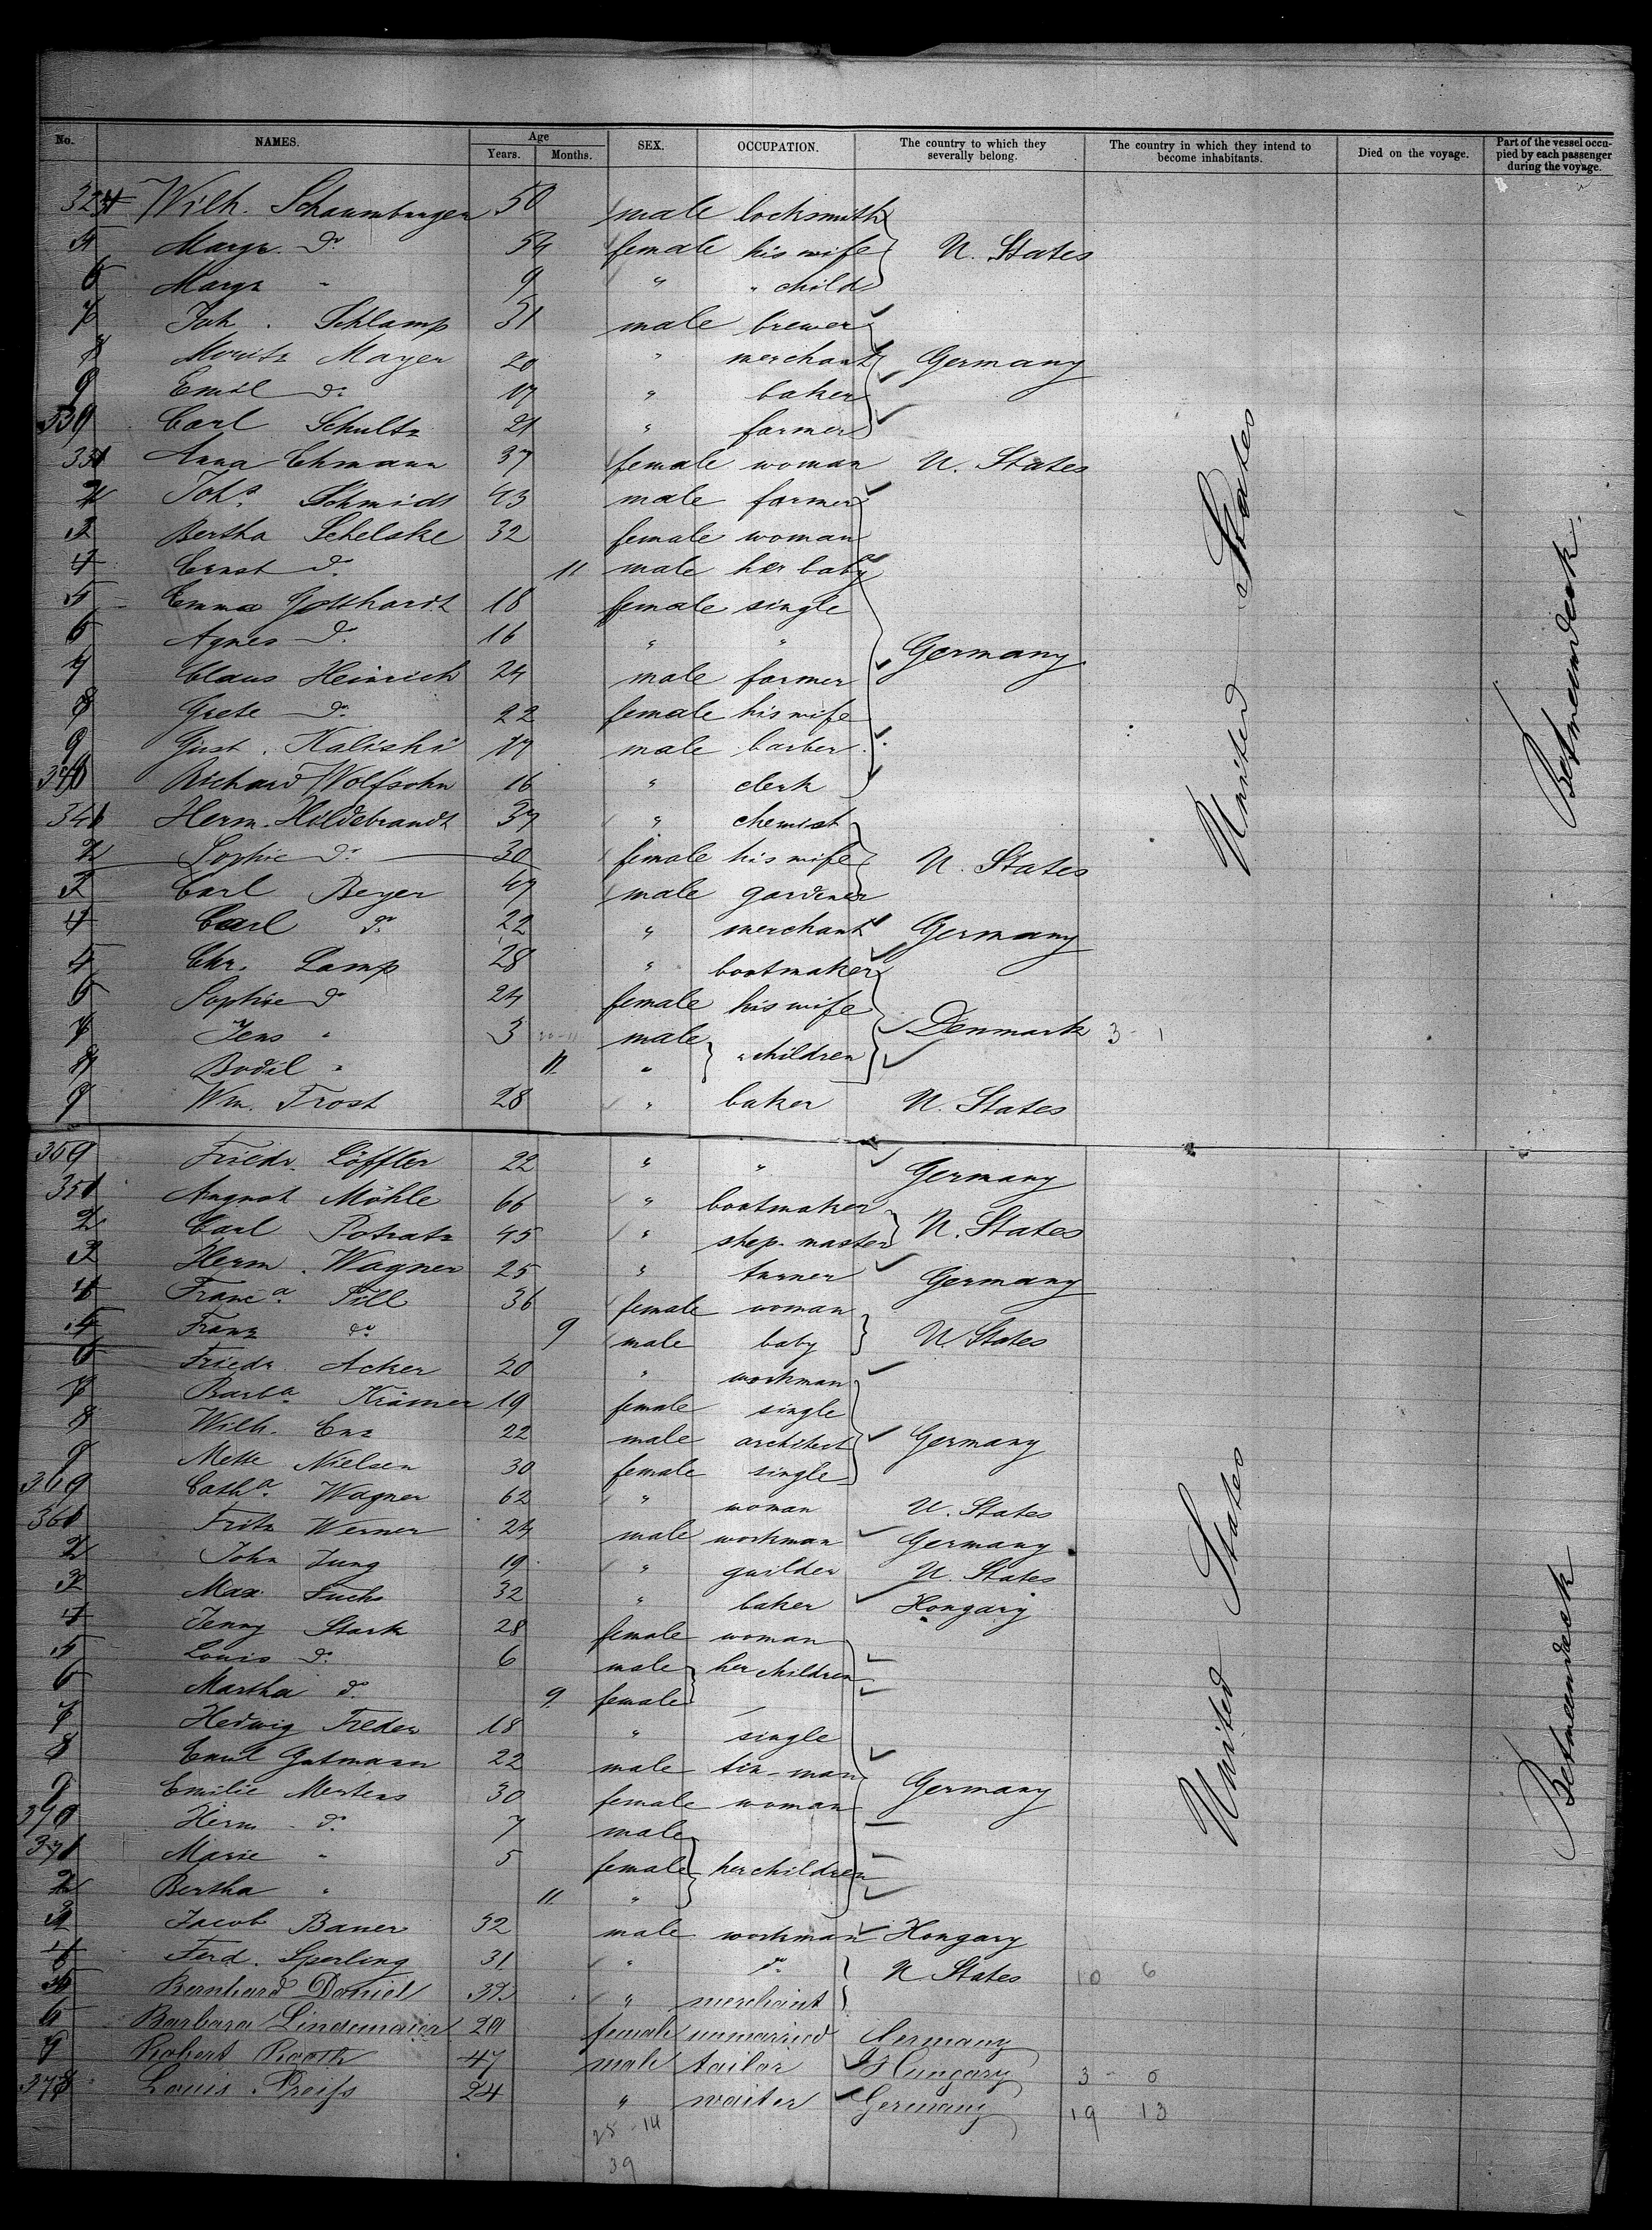 No. NAMES. Age Years. Months. SEX. OCCUPATION. The country to which they severally belong. The country in which they intend to become inhabitants. Died on the voyage. Part of the vessel occupied by each passenger during the voyage.
324 Wilh. Schaumburger 50 male locksmith
5 Margr. do 54 female his wife U. States
6 Margr " 9 " " child
7 Joh. Schlamp 31 male brewer
8 Moritz Mayer 20 " merchant Germany
9 Emil do 17 " baker
330 Carl Schultz 21 " farmer
331 Anna Ehmann 37 female woman U. States
2 Joha. Schmidt 43 male farmer
3 Bertha Schelske 32 female woman
4 Ernst do 11 male her baby
5 Emma Gotthardt 18 female single
6 Agnes do 16 " " Germany
7 Claus Heinrich 24 male farmer
8 Grete do 22 female his wife
9 Gust. Kaliski 17 male barber
340 Richard Wolfsohn 16 " clerk
341 Herm. Hildebrandt 37 " chemist
2 Sophie do 30 female his wife U. States
3 Carl Beyer 47 male gardener
4 Carl do 22 " merchant Germany
5 Chr. Lamp 28 " bootmaker
6 Sophie do 24 female his wife
7 Jens " 3 male " children Denmark 3 - 1
8 Bodil " 11 "
9 Wm. Frost 28 " baker U. States
United States
Betweendeck.
350 Friedr. Löffler 22 " " Germany
351 August Möhle 66 " bootmaker
2 Carl Potratz 45 " shep-master U. States
3 Herm. Wagner 25 " turner Germany
4 Franca. Till 36 female woman
5 Franz do 9 male baby U. States
6 Friedr. Acker 20 " workman
7 Barba. Krämer 19 female single
8 Wilh. Enz 22 male architect Germany
9 Mette Nielsen 30 female single
360 Catha. Wagner 62 " woman U. States
361 Fritz Werner 24 male workman Germany
2 John Jung 19 " guilder U. States
3 Max Fuchs 32 " baker Hongary
4 Jenny Stark 28 female woman
5 Louis do 6 male her children
6 Martha do 9 female
7 Hedwig Freder 18 " single
8 Emil Gutmann 22 male tin-man
9 Emilie Mertens 30 female woman Germany
370 Herm do 7 male
371 Marie " 5 female her children
2 Bertha " 11 "
3 Jacob Bauer 32 male workman Hongary
4 Ferd. Sperling 31 " do U States 10 6
5 Bernhard Daniel 37 " merchant
6 Barbara Lindemaier 20 female unmarried Germany
7 Robert Rooth 47 male tailor Hungary 3 - 0
378 Louis Preifs 24 " waiter Germany 19 13
25 - 14
39
United States
Betweendeck